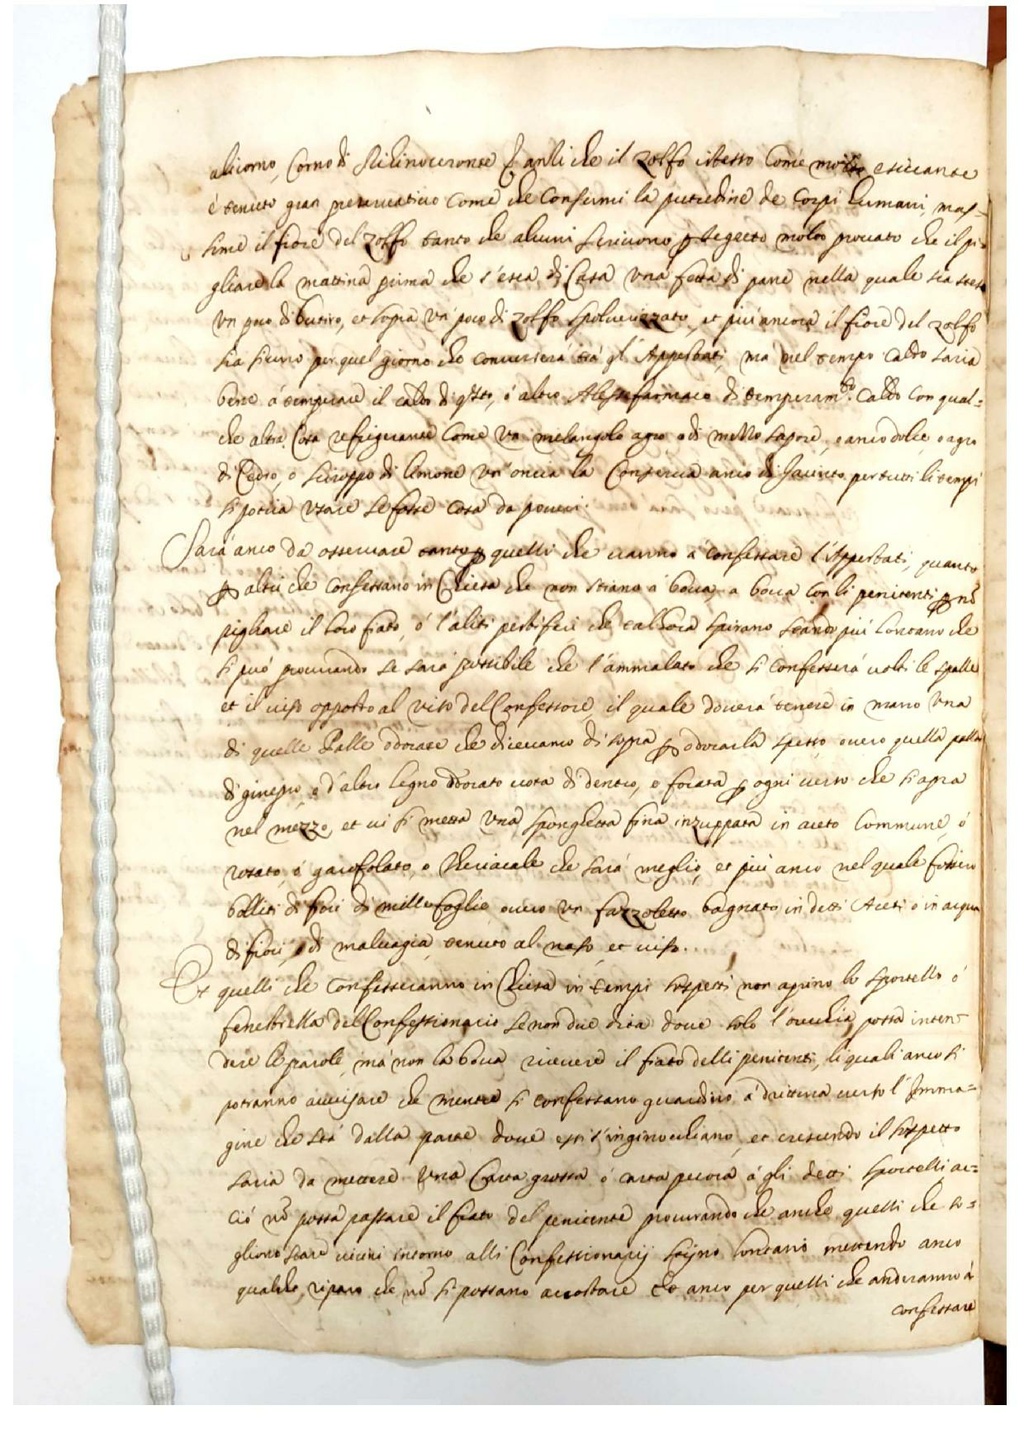 alicorno, Corno di Rihinoceronte & anli che il zolfo istesso come molto esiccante
è tenuto gran preservativo come che consumi la putredine de Corpi humani, mas-
sime il fiore del zolfo tanto che alcuni scrivono p segreto molto provato che il pi-
gliare la mattina prima che s'esca di Casa una fetta di pane nella quale sia steso
un poco di butiro, et sopra un poco di zolfo spoluerizzato, et più ancora il fiore del zolfo
sia sicuro per quel giorno che converserà trà gl'Appestati, ma nel tempo caldo saria
bene à temperare il caldo di qsto, ò altro Alessifarmaco di temperamto. caldo con qual-
che altra cosa refrigerante come un melangolo agro o di mezzo sapore, o anco dolce, o agro
di Cedro, o sciroppo di limone un'oncia la Conserva anco di Jacinto per tutti li tempi
si potria usare se fosse cosa da poveri.
Sarà anco da osservare tanto p quelli che vanno à confessare l'Appestati, quanto
p altri che confessano in Chiesa che non stiano à bocca, a bocca con li penitenti p nō
pigliare il loro fiato, ò l'aliti pestiferi che talhora spirano stando più lontano che
si può procurando se sarà possibile che l'ammalato che si confesserà volti le spalle
et il viso opposto al viso del Confessore, il quale doverà tenere in mano una
di quelle Palle odorate che dicevamo di sopra p odorarla spesso, overo quella palla
di ginepro, o d'altro legno odorato vota di dentro, o forata p ogni verso che s'apra
nel mezzo, et vi si metta una sponghetta fina inzuppata in aceto commune, ò
rosato, ò garofolato, o theriacale che sarà meglio, et più anco nel quale fossero
bolliti di fiori di millefoglio overo un fazzoletto bagnato in detti Aceti o in acqua
di fiori, o di malvagia, tenuto al naso, et viso.
Et quelli che confesseranno in Chiesa in tempi sospetti non aprino lo sportello ò
fenestrella del Confessionario se non due dita dove solo l'orecchia possa inten-
dere le parole, ma non la bocca ricevere il fiato delli penitenti, li quali anco si
potranno avvisare che mentre si confessano guardino à drittura verso l'Imma-
gine che stà dalla parte dove essi s'inginocchiano, et crescendo il sospetto
saria da mettere una Carta grossa ò carta pecora à gli detti sportelli ac-
ciò nō possa passare il fiato del penitente procurando che anche quelli che so-
gliono stare vicini intorno alli Confessionarij stijno lontani mettendo anco
qualche riparo che nō si possano accostare Et anco per quelli che anderanno à
confessare